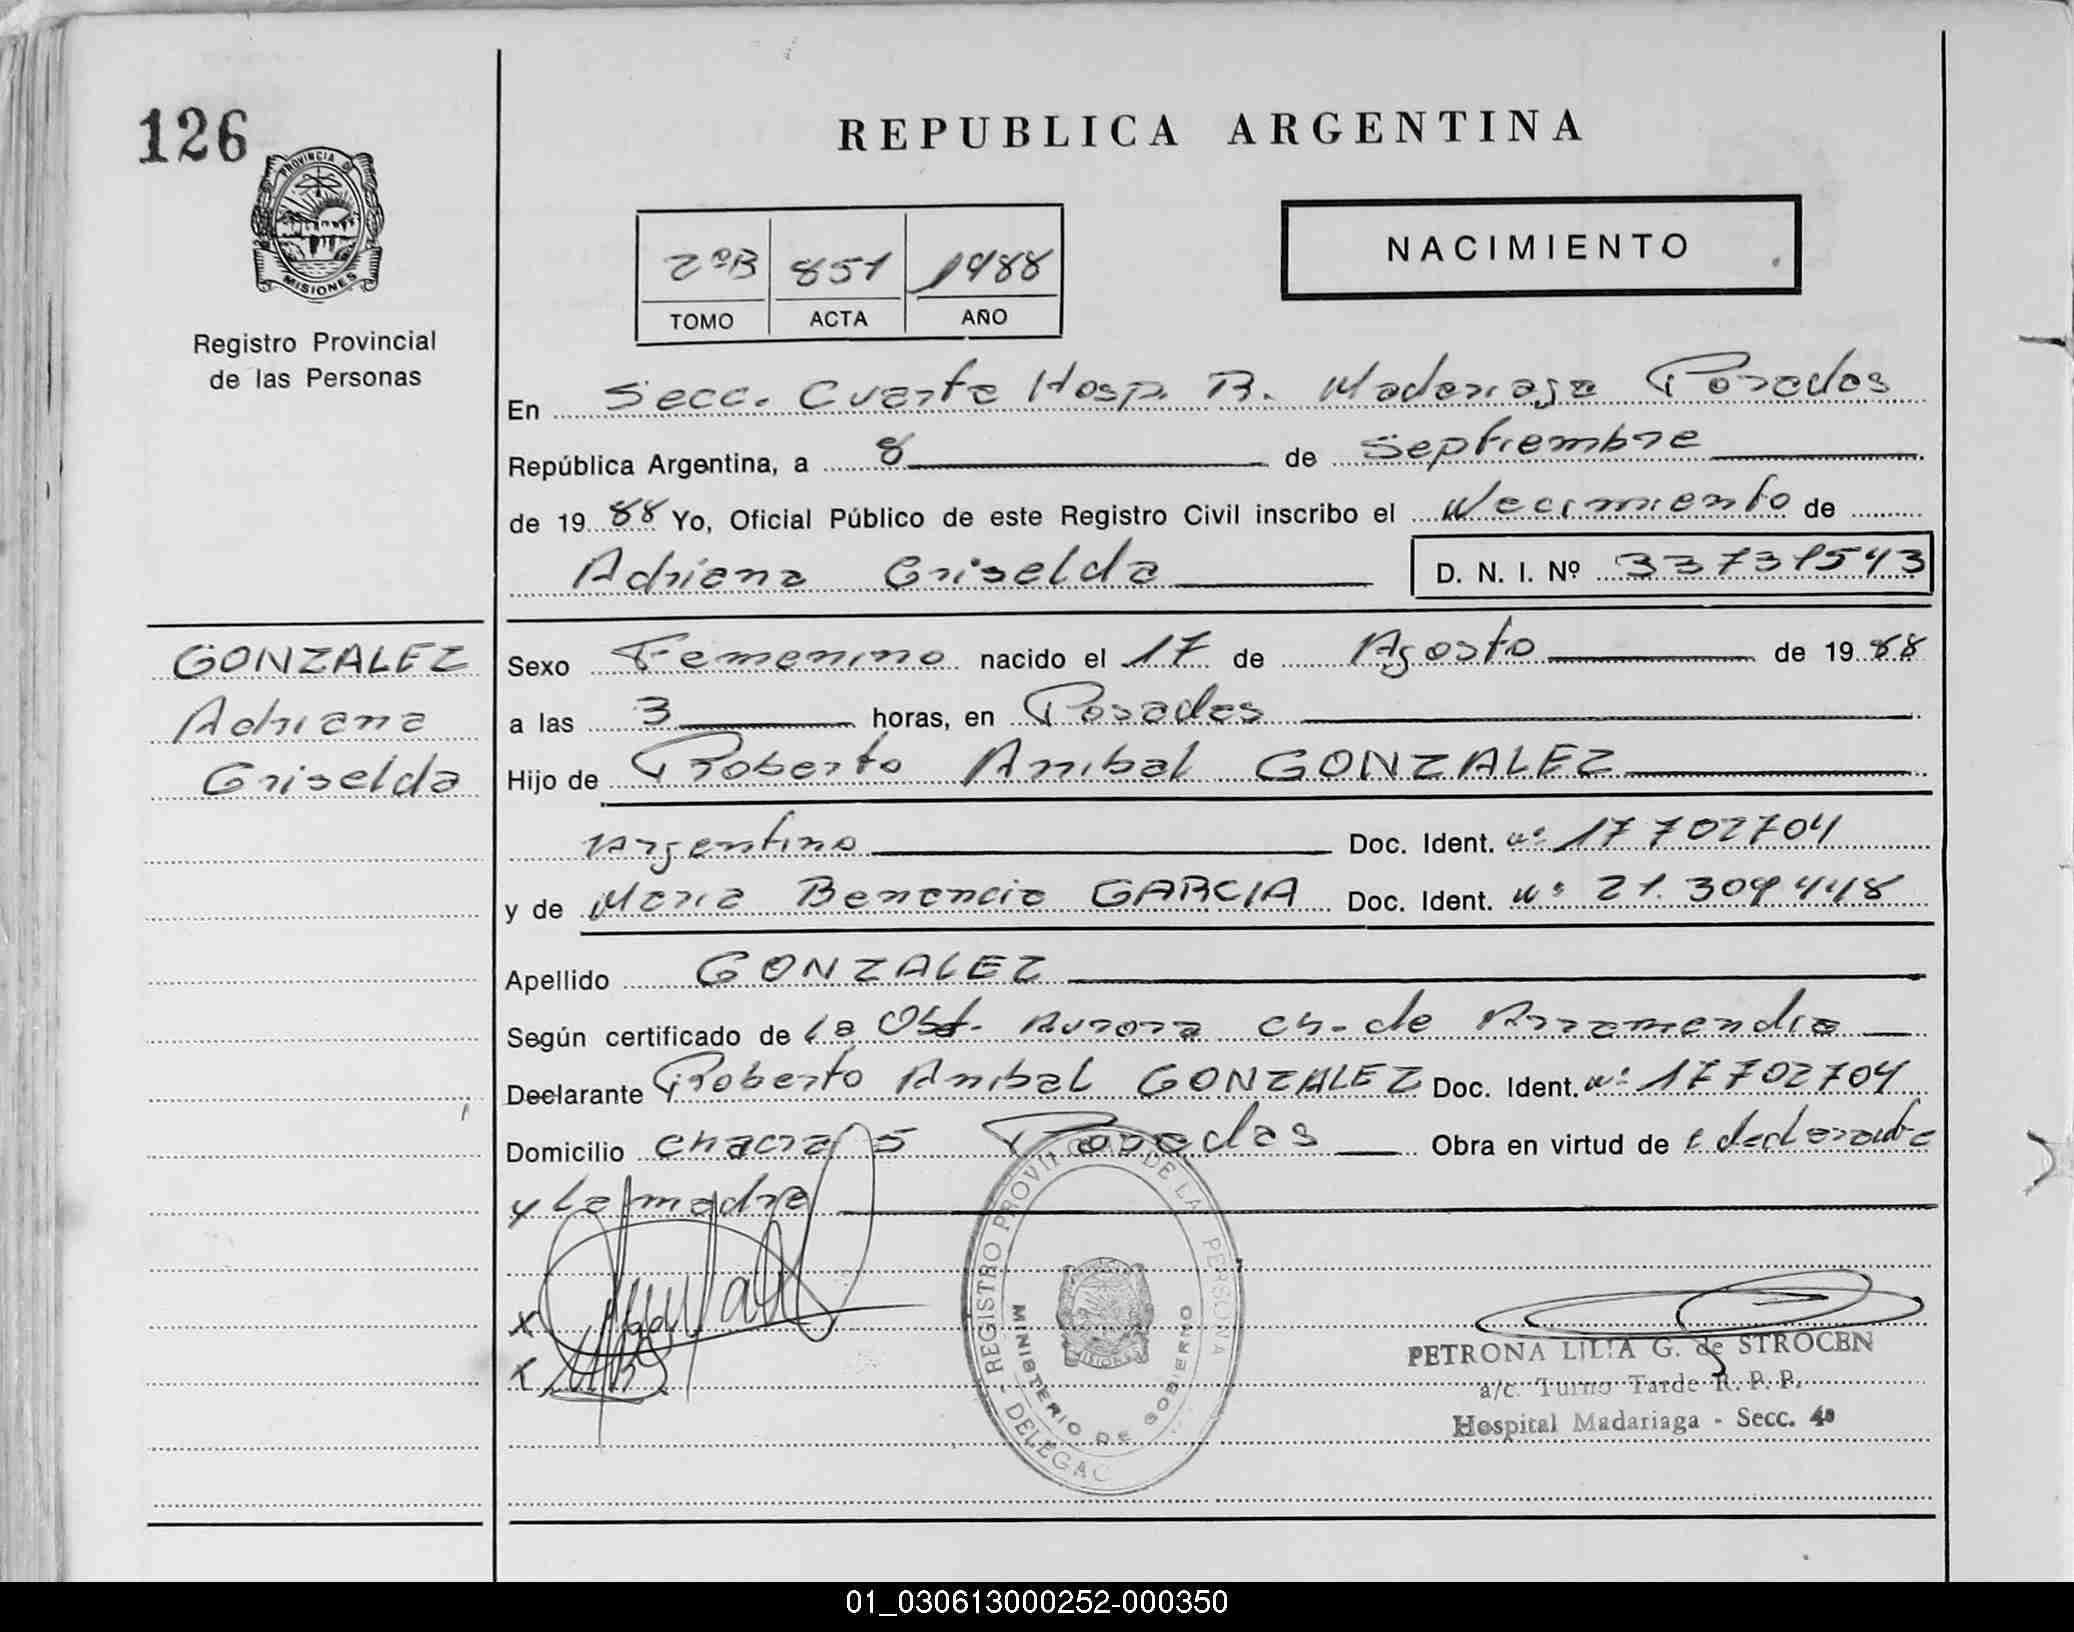 126
PROVINCIA DE
MISIONES
Registro Provincial
de las Personas
REPUBLICA ARGENTINA
NACIMIENTO
2ºB 851 1988
TOMO ACTA AÑO
En Secc. Cuarta Hosp. R. Madariaga Posadas
República Argentina, a 8 de Septiembre
de 1988 Yo, Oficial Público de este Registro Civil inscribo el Nacimiento de
Adriana Griselda D. N. I. Nº 33731543
GONZALEZ
Adriana
Griselda
Sexo Femenino nacido el 17 de Agosto de 1988
a las 3 horas, en Posadas
Hijo de Roberto Anibal GONZALEZ
Argentino Doc. Ident. nº 17702704
y de Maria Benancia GARCIA Doc. Ident. nº 21.309448
Apellido GONZALEZ
Según certificado de la Obst. Aurora Ch. de Arramendia
Declarante Roberto Anibal GONZALEZ Doc. Ident. nº 17702704
Domicilio Chacra 5 Posadas Obra en virtud de declarante
y La madre
REGISTRO PROVINCIAL DE LA PERSONA
MINISTERIO DE GOBIERNO
DELEGAC
MISIONES
x
x
PETRONA LILIA G. de STROCEN
a/c. Turno Tarde R. P. P.
Hospital Madariaga - Secc. 4ª
01_030613000252-000350